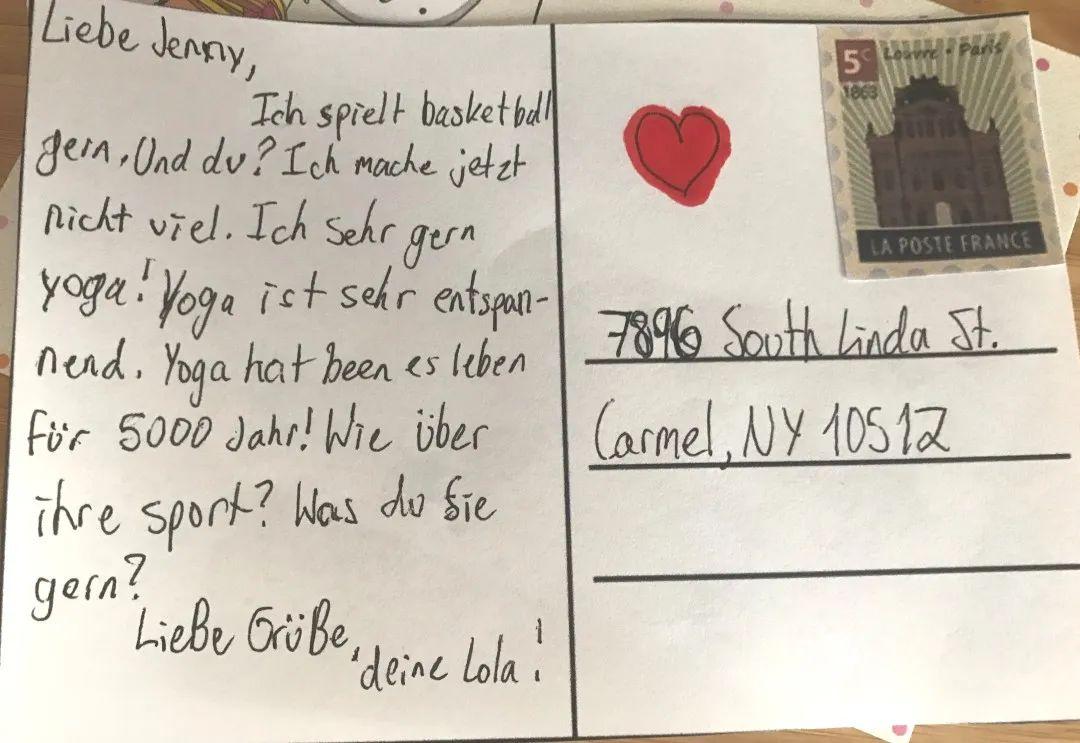 Liebe Jenny,
Ich spielt basketball
gern. Und du? Ich mache jetzt
nicht viel. Ich sehr gern
yoga! Yoga ist sehr entspan-
nend. Yoga hat been es leben
für 5000 Jahr! Wie über
ihre sport? Was du Sie
gern?
Liebe Grüße,
deine Lola!
5c Louvre • Paris
1863
LA POSTE FRANCE
7896 South Linda St.
Carmel, NY 10512